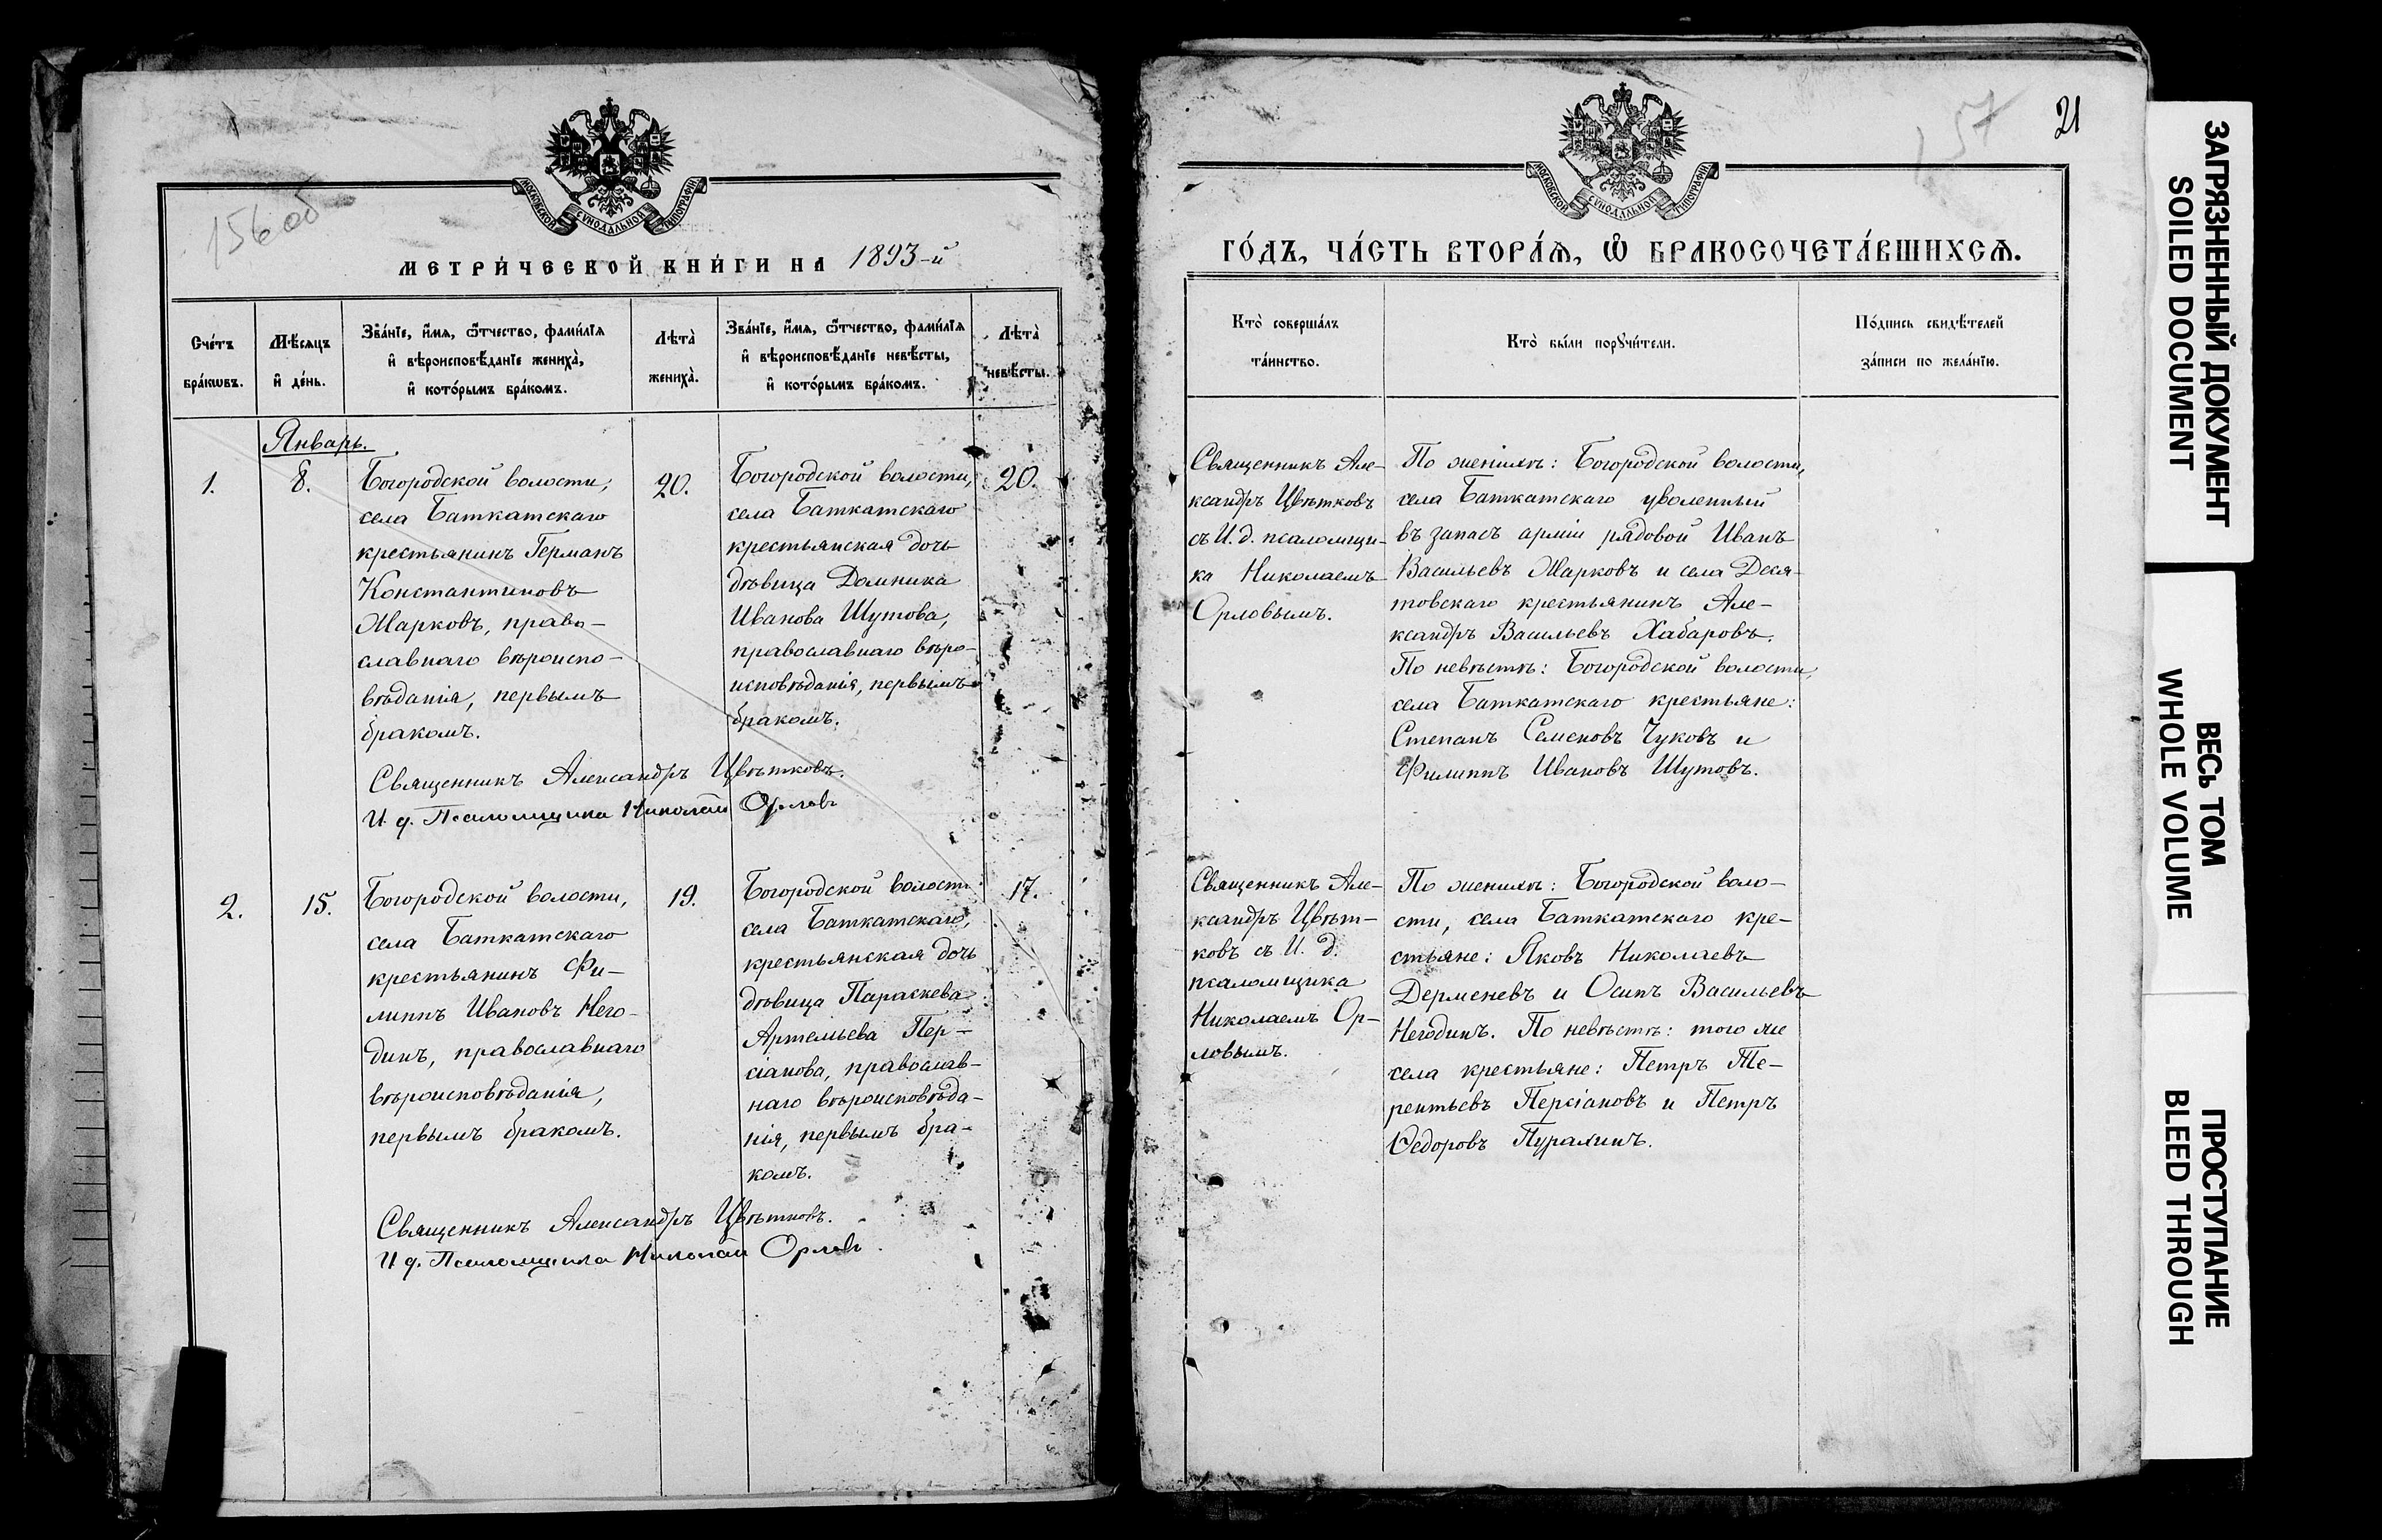 156об
МОСКОВСКОЙ СѴНОДАЛЬНОЙ ТИПОГРАФІИ
МЕТРИ́ЧЕСКОЙ КНИ́ГИ НА 1893-й
Сче́тъ бра́кѡвъ.
Мѣ́сяцъ и҆ де́нь.
Зва́нїе, и҆́мя, ѻ҆́тчество, фами́лїя
и҆ вѣроисповѣ́данїе жениха̀,
и҆ кото́рымъ бра́комъ.
Лѣта̀ жениха̀.
Зва́нїе, и҆́мя, ѻ҆́тчество, фами́лїя
и҆ вѣроисповѣ́данїе невѣ́сты,
и҆ кото́рымъ бра́комъ.
Лѣта̀ невѣ́сты.
Январь.
1.
8.
Богородской волости,
села Баткатскаго
крестьянинъ Германъ
Константиновъ
Марковъ, право-
славнаго вѣроиспо-
вѣданія, первымъ
бракомъ.
20.
Богородской волости,
села Баткатскаго
крестьянская дочь
дѣвица Домника
Иванова Шутова,
православнаго вѣро-
исповѣданія, первымъ
бракомъ.
20.
Священникъ Александръ Цвѣтковъ.
И. д. Псаломщика Николай Орловъ
2.
15.
Богородской волости,
села Баткатскаго
крестьянинъ Фи-
липпъ Ивановъ Него-
динъ, православнаго
вѣроисповѣданія,
первымъ бракомъ.
19.
Богородской волости
села Баткатскаго,
крестьянская дочь
дѣвица Параскева
Артемьева Пер-
сіанова, православ-
наго вѣроисповѣда-
нія, первымъ бра-
комъ.
17.
Священникъ Александръ Цвѣтковъ.
И д. Псаломщика Николай Орловъ.
157
21
МОСКОВСКОЙ СѴНОДАЛЬНОЙ ТИПОГРАФІИ
ГО́ДЪ, ЧА́СТЬ ВТОРА́Ѧ, Ѡ҆ БРАКОСОЧЕТА́ВШИХСѦ.
Кто̀ соверша́лъ
та́инство.
Кто̀ бы́ли порꙋчи́тели.
По́дпись свидѣ́телей
за́писи по жела́нїю.
Священникъ Але-
ксандръ Цвѣтковъ
съ И. д. псаломщи-
ка Николаемъ
Орловымъ.
По женихѣ: Богородской волости,
села Баткатскаго уволенный
въ запасъ арміи рядовой Иванъ
Васильевъ Марковъ и села Деся-
товскаго крестьянинъ Але-
ксандръ Васильевъ Хабаровъ.
По невѣстѣ: Богородской волости,
села Баткатскаго крестьяне:
Степанъ Семеновъ Чуковъ и
Филиппъ Ивановъ Шутовъ.
Священникъ Але-
ксандръ Цвѣт-
ковъ съ И. д.
псаломщика
Николаемъ Ор-
ловымъ.
По женихѣ: Богородской воло-
сти, села Баткатскаго кре-
стьяне: Яковъ Николаевъ
Дерменевъ и Осипъ Васильевъ
Негодинъ. По невѣстѣ: того же
села крестьяне: Петръ Те-
рентьевъ Персіановъ и Петръ
Ѳедоровъ Пурахинъ.
ЗАГРЯЗНЕННЫЙ ДОКУМЕНТ
SOILED DOCUMENT
ВЕСЬ ТОМ
WHOLE VOLUME
ПРОСТУПАНИЕ
BLEED THROUGH